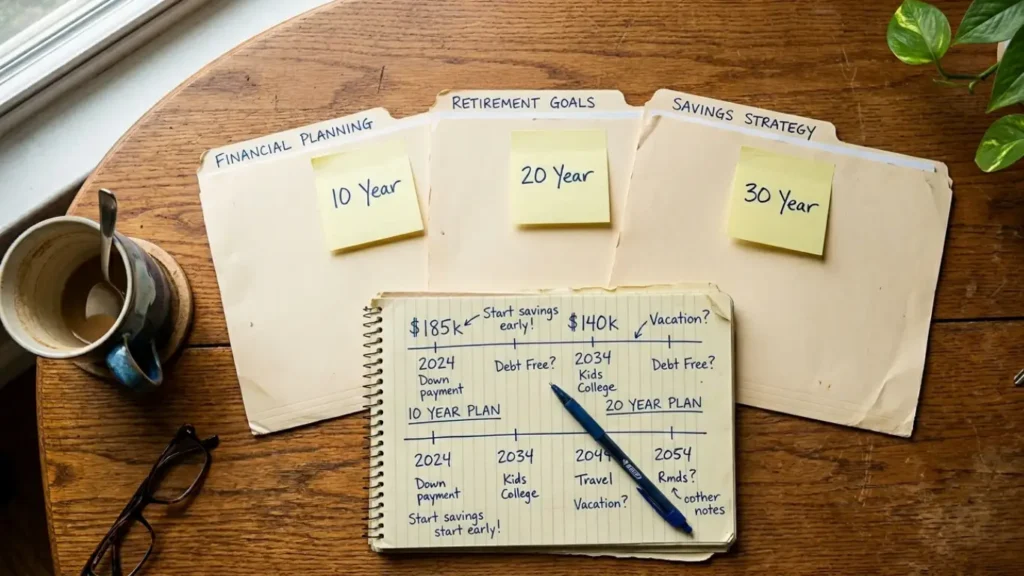 FINANCIAL PLANNING
RETIREMENT GOALS
SAVINGS STRATEGY
10 Year
20 Year
30 Year
$185k
Start savings
early!
$140k
Vacation?
2024
Down
payment
Debt Free?
2034
Kids
College
Debt Free?
10 YEAR PLAN
20 YEAR PLAN
2024
Down
payment
2034
Kids
College
2044
Travel
Vacation?
2054
Rmds?
cother
notes
Start savings
start early!